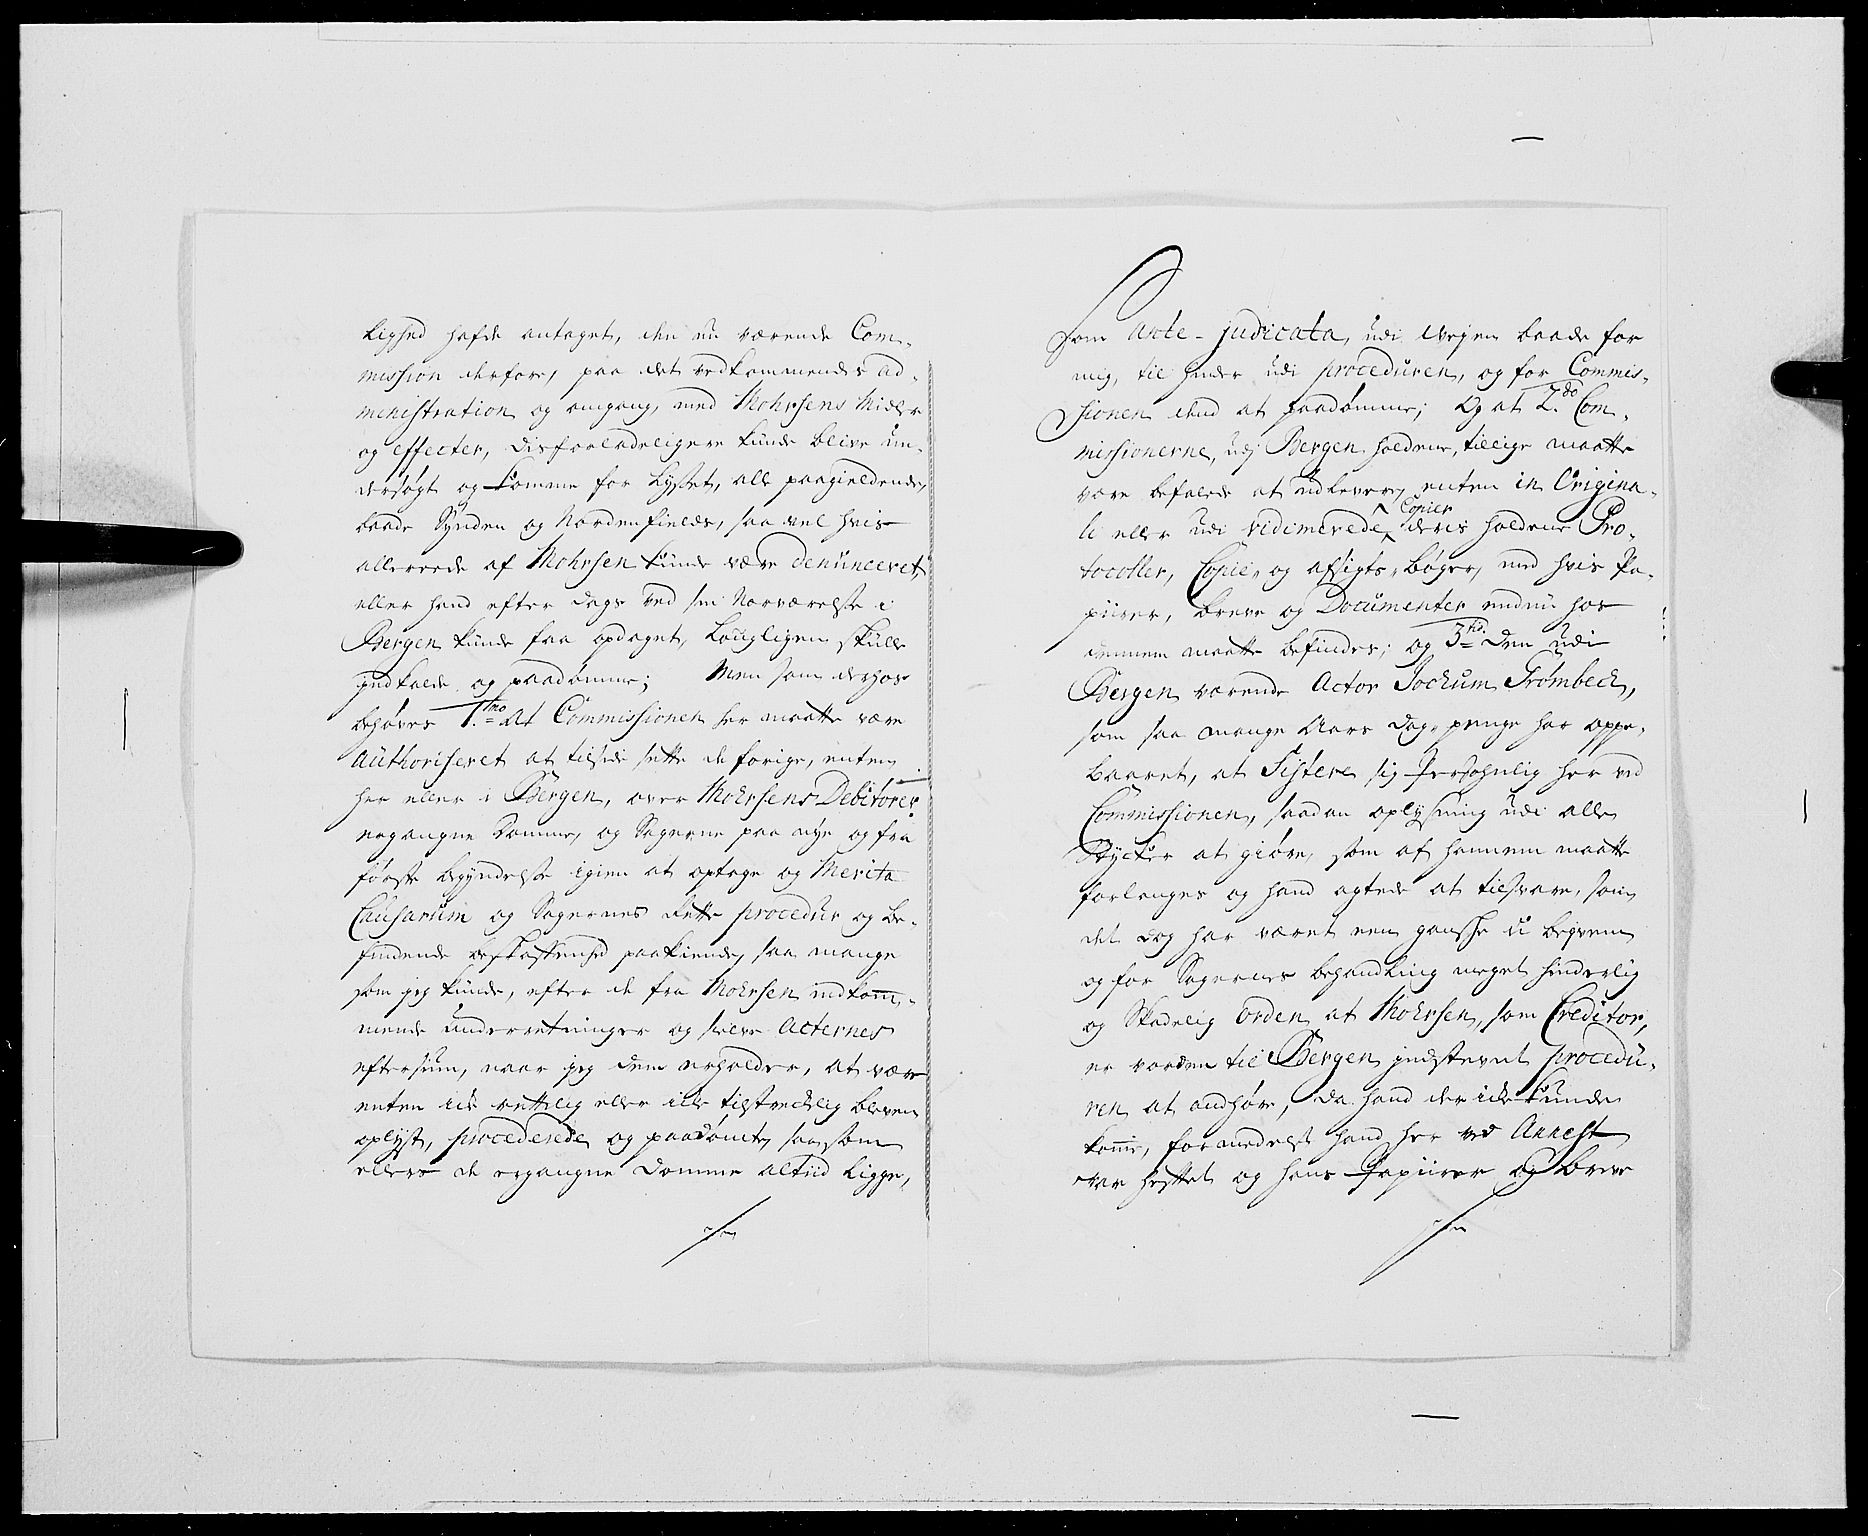 lighed hafde antaget, den nu værende Com-
mission derfore, paa det vedkommendes ad-
ministration og omgang, med Mohrsens Midler
og effecter, disforladeligere kunde blive un-
dersøgt og komme for Lyset, alle paagieldende,
baade Synden og Nordenfields, saa vel hvis
allereede af Mohrsen kunde være denunceret,
eller hand efter dags ved sin Nærværelse i
Bergen kunde faa opdaget, Lougligen skulle
indkalde og paadømme; Men som derhos
behøves 1.mo At Commissionen her maatte være
Authoriseret at tilside sette de forige, enten
her eller i Bergen, over Mohrsens Debitorer
ergangne Domme, og Sagerne paa nye og fra
første begyndelse igien at optage og Merita
Causarum og Sagernes Rette procedur og be-
findende beskaffenhed paakiende, saa mange
som jeg kunde, efter de fra Mohrsen indkom-
mende underretninger og selve Acternes
eftersiun, naar jeg dem erholder, at være
enten icke rettelig eller icke tilstreckelig bleven
oplyst, procederede og paadømt, saa som
ellers de ergangne Domme altiid ligge,
som
som Acte-judicata, udi Vejen baade for
mig, til hinder udi proceduren, og for Commis-
sionen imod at paadømme; Og at 2.do Com-
missionerne, udj Bergen holdene, tillige maatte
være befalede at udlevere, enten in Origina-
li eller udi vidimerede Copier deris holdene Pro-
tocoller, Copie- og afsigts-Bøger, med hvis Pa-
piirer, breve og Documenter endnu hos
dennem maatte befindes; og 3tio den udi
Bergen værende Actor Jochum Frombeck,
som saa mange Aars dag-penge har oppe-
baaret, at Sistere sig Persohnlig her ved
Commissionen, saadan oplysning udi alle
Stycker at giøre, som af hannem maatte
forlanges og hand agtede at tilsvare, som
det dog har været een gansche u begvem
og for Sagernes behandling meget hinderlig
og Skadelig Orden at Mohrsen, som Creditor,
er vorden til Bergen indstevnt procedu-
ren at andhøre, da hand der icke kunde
komme, formedelst hand her ved Arrest
var heftet og hans Papiirer og breve
som